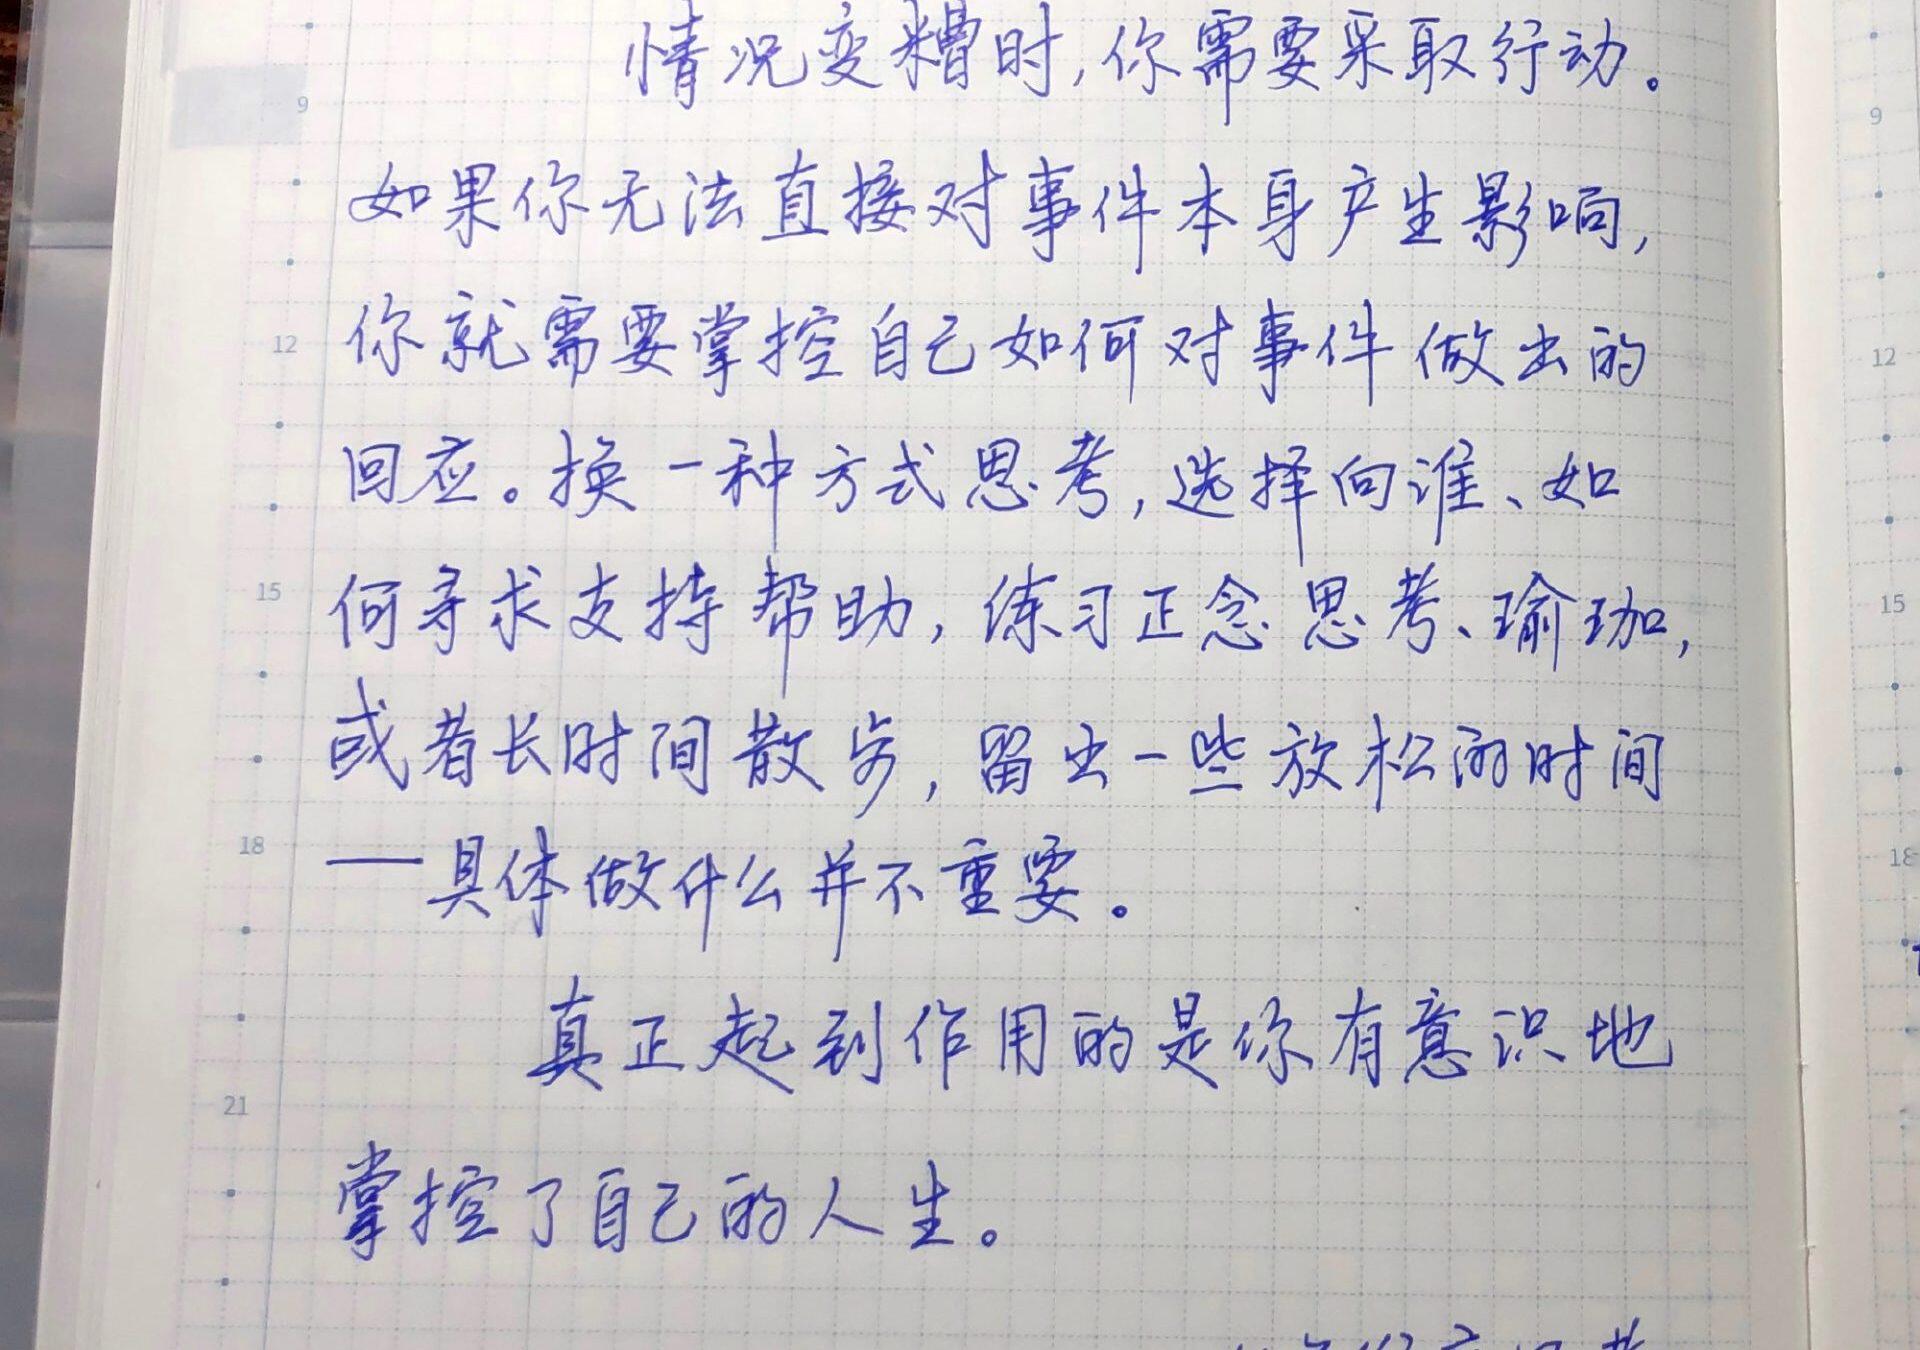 9
情况变糟时,你需要采取行动。
如果你无法直接对事件本身产生影响,
12
你就需要掌控自己如何对事件做出的
回应。换一种方式思考,选择向谁、如
15
何寻求支持帮助,练习正念思考、瑜珈,
或者长时间散步,留出一些放松的时间
18
——具体做什么并不重要。
真正起到作用的是你有意识地
21
掌控了自己的人生。
9
12
15
18